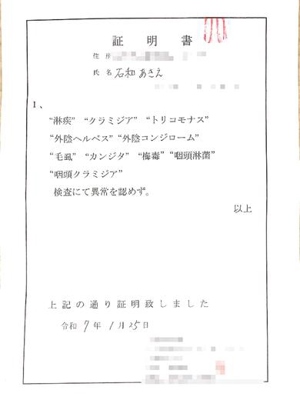 証明書
住所
氏名 石和 あきえ
1、
"淋疾" "クラミジア" "トリコモナス"
"外陰ヘルペス" "外陰コンジローム"
"毛虱" "カンジタ" "梅毒" "咽頭淋菌"
"咽頭クラミジア"
検査にて異常を認めず。
以上
上記の通り証明致しました
令和 7年 1月 25日